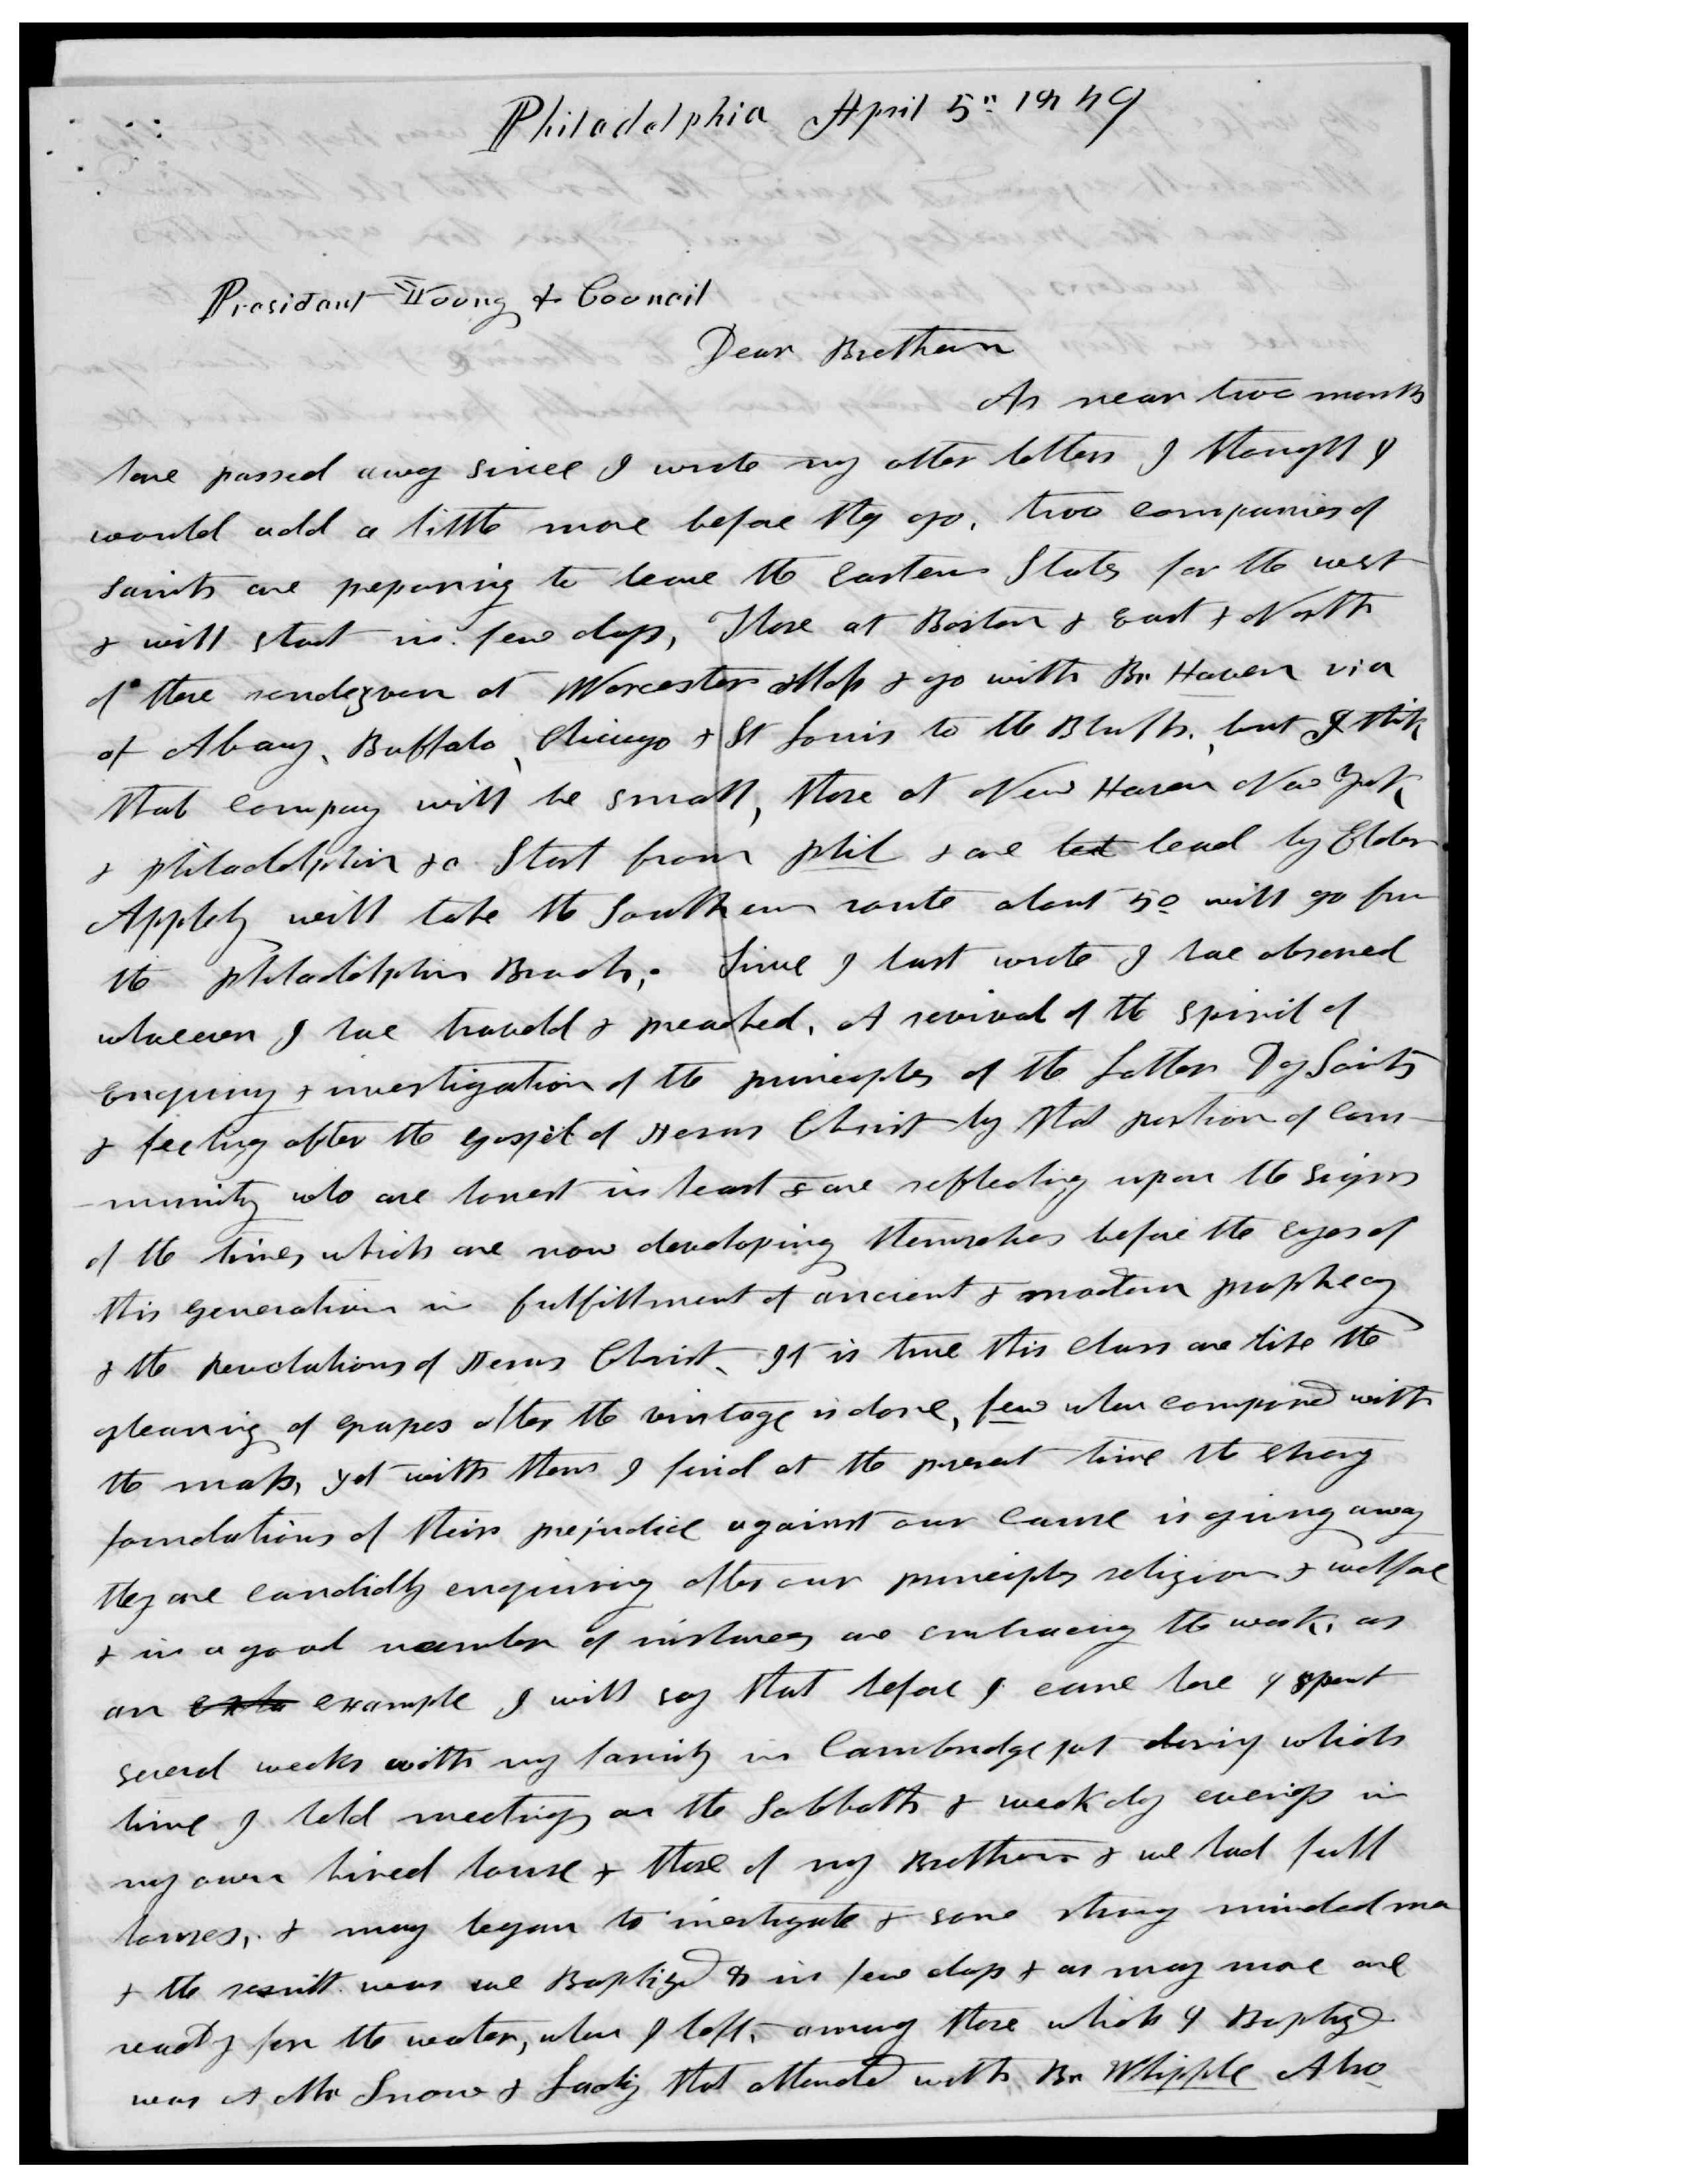 Philadelphia April 5th 1849
President Young & Council
Dear Brethren
As near two months
have passed away since I wrote my other letters I thought I
would add a little more before they go. two companies of
Saints are preparing to leave the Eastern States for the west
& will start in few days, Those at Boston & East & North
of there rendezvou at Worcester Mass & go with Br Haven via
of Albany, Buffalo, Chicago & St Louis to the Bluffs, but I think
that company will be small, those at New Haven New York,
& Philadelphia &c Start from phil & are led lead by Elder
Appleby will take the Southern route about 50 will go from
the Philadelphia Branch; Since I last wrote I have observed
whareever I have travelld & preached, A revival of the spirit of
Enquiry & investigation of the principles of the Latter Day Saints
& feeling after the gospel of Jesus Christ by that portion of com-
-munity who are honest in heart & are reflecting upon the signs
of the times which are now developing themselves before the eyes of
this generation in fulfillment of ancient & modern prophecy
& the Revelations of Jesus Christ. It is true this class are like the
gleaning of grapes after the vintage is done, few when compared with
the mass, yet with them I find at the present time the strong
foundations of their prejudice against our cause is giving away
they are candidly enquiring after our principles religion & welfare
& in a good number of instances are embracing the work, as
an example I will say that before I came here I spent
several weeks with my family in Cambridgeport during which
time I held meetings on the Sabbath & week day evenings in
my own hired house & those of my Brethren & we had full
houses, & many began to investigate & some strong minded men
& the result was we Baptized 8 in few days & as many more are
ready for the water, when I left, among those which I Baptized
was A Mr Snow & Lady that attended with Br Whipple Also